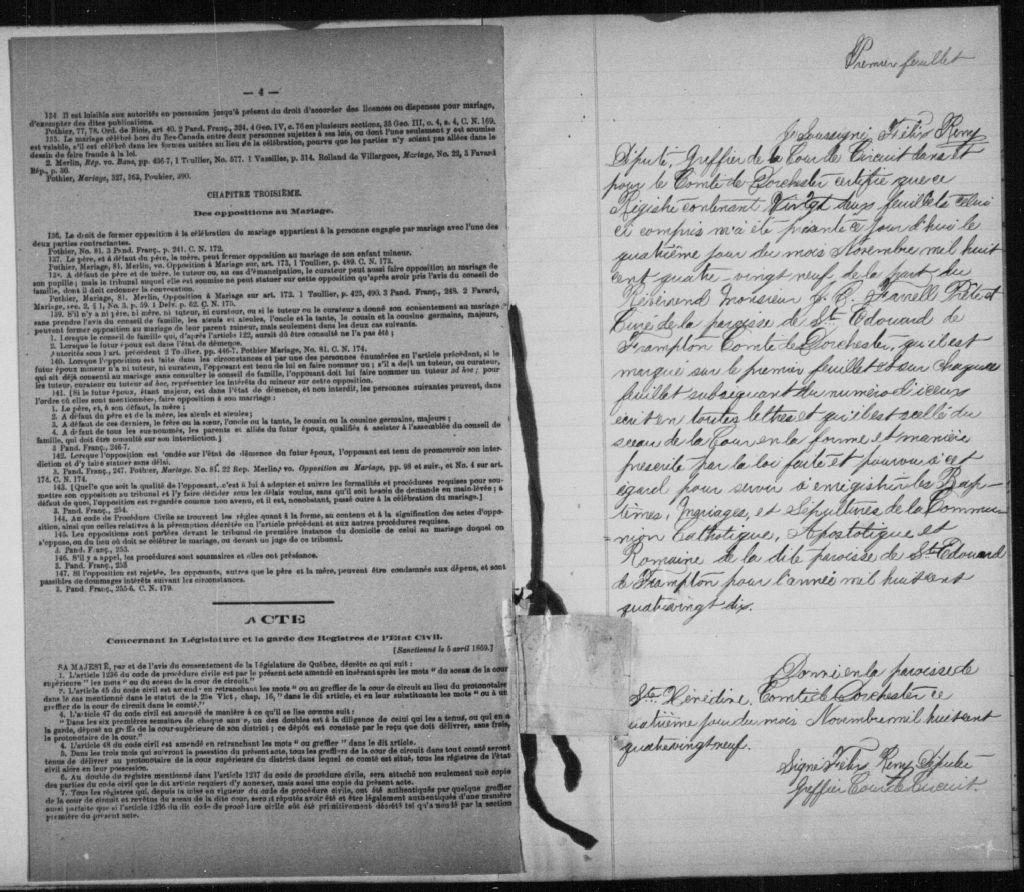 — 4 —
134. Il est loisible aux autorités en possession jusqu'à présent du droit d'accorder des licences ou dispenses pour mariage,
d'exempter des dites publications.
Pothier, 77, 78. Ord. de Blois, art 40. 2 Pand. Franç., 324. 4 Geo. IV, c. 76 en plusieurs sections, 35 Geo. III, c. 4, s. 4, C. N. 169.
135. Le mariage célébré hors du Bas-Canada entre deux personnes sujettes à ses lois, ou dont l'une seulement y est soumise
est valable, s'il est célébré dans les formes usitées au lieu de la célébration, pourvu que les parties n'y soient pas allées dans le
dessin de faire fraude à la loi.
2. Merlin, Rép. vo. Bans, pp. 456-7, 1 Toullier, No. 577. 1 Vazeilles, p. 314. Rolland de Villargues, Mariage, No. 22, 5 Favard
Rép., p. 50.
Pothier, Mariage, 327, 363, Pouhier, 390.
CHAPITRE TROISIÈME.
Des oppositions au Mariage.
136. Le droit de former opposition à la célébration du mariage appartient à la personne engagée par mariage avec l'une des
deux parties contractantes.
Pothier, No. 81. 3 Pand. Franç., p. 241. C. N. 172.
137. Le père, et à défaut du père, la mère, peut former opposition au mariage de son enfant mineur.
Pothier, Mariage, 81. Merlin, vo. Opposition à Mariage sur art. 173, 1 Toullier, p. 489. C. N. 173.
138. A défaut de père et de mère, le tuteur ou, en cas d'émancipation, le curateur peut aussi faire opposition au mariage de
son pupille; mais le tribunal auquel elle est soumise ne peut statuer sur cette opposition qu'après avoir pris l'avis du conseil de
famille, dont il doit ordonner la convocation.
Pothier, Mariage, 81. Merlin, Opposition à Mariage sur art. 172. 1 Toullier, p. 425, 490. 3 Pand. Franç., 248. 2 Favard,
Mariage, sec. 2, § 1, No. 3, p. 59. 1 Delv. p. 62. C. N. 175.
139. S'il n'y a ni père, ni mère, ni tuteur, ni curateur, ou si le tuteur ou le curateur a donné son consentement au mariage
sans prendre l'avis du conseil de famille, les aïeuls et aïeules, l'oncle et la tante, le cousin et la cousine germains, majeurs,
peuvent former opposition au mariage de leur parent mineur, mais seulement dans les deux cas suivants.
1. Lorsque le conseil de famille qui, d'après l'article 122, aurait dû être consulté ne l'a pas été;
2. Lorsque le futur époux est dans l'état de démence.
Autorités sous l'art. précédent 2 Toullier, pp. 446-7. Pothier Mariage, No. 81. C. N. 174.
140. Lorsque l'opposition est faite dans les circonstances et par une des personnes énumérées en l'article précédent, si le
futur époux mineur n'a ni tuteur, ni curateur, l'opposant est tenu de lui en faire nommer un; s'il a déjà un tuteur, ou curateur,
qui ait déjà consenti au mariage sans consulter le conseil de famille, l'opposant doit lui faire nommer un tuteur ad hoc; pour
les tuteur, curateur ou tuteur ad hoc, représenter les intérêts du mineur sur cette opposition.
141. [Si le futur époux, étant majeur, est dans l'état de démence, et non interdit, les personnes suivantes peuvent, dans
l'ordre où elles sont mentionnées, faire opposition à son mariage:
1. Le père, et, à son défaut, la mère;
2. A défaut du père et de la mère, les aïeuls et aïeules;
3. A défaut de ces derniers, le frère ou la sœur, l'oncle ou la tante, le cousin ou la cousine germains, majeurs;
4. A défaut de tous les sus-nommés, les parents et alliés du futur époux, qualifiés à assister à l'assemblée du conseil de
famille, qui doit être consulté sur son interdiction.]
3 Pand. Franç., 246-7.
142. Lorsque l'opposition est fondée sur l'état de démence du futur époux, l'opposant est tenu de promouvoir son inter-
diction et d'y faire statuer sans délai.
3. Pand. Franç., 247. Pothier, Mariage. No. 81. 22 Rep. Merlin, vo. Opposition au Mariage, pp. 98 et suiv., et No. 4 sur art.
174. C. N. 174.
143. [Quelle que soit la qualité de l'opposant, c'est à lui à adopter et suivre les formalités et procédures requises pour sou-
mettre son opposition au tribunal et l'y faire décider sous les délais voulus, sans qu'il soit besoin de demande en main-levée; à
défaut de quoi, l'opposition est regardée comme non avenue, et il est, nonobstant, passé outre à la célébration du mariage.]
3. Pand. Franç., 254.
144. Au code de Procédure Civile se trouvent les règles quant à la forme, au contenu et à la signification des actes d'oppo-
sition, ainsi que celles relatives à la péremption décrétée en l'article précédent et aux autres procédures requises.
145. Les oppositions sont portées devant le tribunal de première instance du domicile de celui au mariage duquel on
s'oppose, ou du lieu où doit se célébrer le mariage, ou devant un juge de ce tribunal.
3. Pand. Franç., 253.
146. S'il y a appel, les procédures sont sommaires et elles ont préséance.
3. Pand. Franç., 253
147. Si l'opposition est rejetée, les opposants, autres que le père et la mère, peuvent être condamnés aux dépens, et sont
passibles de dommages intérêts suivant les circonstances.
3. Pand. Franç., 255-6. C. N. 179.
ACTE
Concernant la Législature et la garde des Registres de l'Etat Civil.
[Sanctionné le 5 avril 1869.]
SA MAJESTÉ, par et de l'avis du consentement de la législature de Québec, décrète ce qui suit:
1. L'article 1236 du code de procédure civile est par le présent acte amendé en insérant après les mots "du sceau de la cour
supérieure" les mots "ou du sceau de la cour de circuit."
2. L'article 45 du code civil est amendé en retranchant les mots "ou au greffier de la cour de circuit au lieu du protonotaire
dans le cas mentionné dans le statut de la 25e Vict, chap, 16," dans le dit article, et en leur substituant les mots "ou à un
greffier de la cour de circuit dans le comté."
4. L'article 47 du code civil est amendé de manière à ce qu'il se lise comme suit:
"Dans les six premières semaines de chaque année, un des doubles est à la diligence de celui qui les a tenus, ou qui en a
la garde, déposé au greffe de la cour supérieure de son district; ce dépôt est constaté par le reçu que doit délivrer, sans frais,
le protonotaire de la cour."
4. L'article 48 du code civil est amendé en retranchant les mots "ou greffier" dans le dit article.
5. Dans les trois mois qui suivront la passation du présent acte, tous les greffiers de la cour de circuit dans tout comté seront
tenus de délivrer au protonotaire de la cour supérieure du district dans lequel ce comté est situé, tous les registres de l'état
civil alors en leur possession.
6. Au double du registre mentionné dans l'article 1237 du code de procédure civile, sera attaché non seulement une copie
des parties du code civil que le dit article requiert d'y annexer, mais aussi une copie du présent acte.
7. Tous les registres qui, depuis la mise en vigueur du code de procédure civile, ont été authentiqués par quelque greffier
de la cour de circuit et revêtus du sceau de la dite cour, seront réputés avoir été et être légalement authentiqués d'une manière
aussi parfaite que si l'article 1236 du dit code de procédure civile eût été primitivement décrété tel qu'amendé par la section
première du présent acte.
Premier feuillet
Je Soussigné, Félix Remy
Député, Greffier de la Cour de Circuit dans et
pour le Comté de Dorchester certifie que ce
Régistre contenant Vingt deux feuillets celui
ci compris m'a été présenté ce jourd'hui le
quatrième jour du mois Novembre mil huit
cent quatre-vingt neuf, de la part du
Révérend Monsieur Farrelle Prêtre et
Curé de la paroisse de St. Edouard de
Frampton Comté de Dorchester, qu'il est
marqué sur le premier feuillet et sur chaque
feuillet subséquant du numéro d'iceux
écrit en toutes lettres et qu'il est scellé du
sceau de la Cour en la forme et manière
prescrite par la loi faite et pourvu à cet
égard pour servir à enregistrer les Bap-
têmes, Mariages, et Sépultures de la Commu-
=nion Catholique, Apostolique et
Romaine de la dite paroisse de St. Edouard
de Frampton pour l'année mil huit cent
quatrevingt dix.
Donné en la paroisse de
Ste. Hénédine, Comté de Dorchester ce
quatrième jour du mois Novembre mil huit cent
quatrevingt neuf.
Signé Félix Remy Député
Greffier Cour de Circuit.